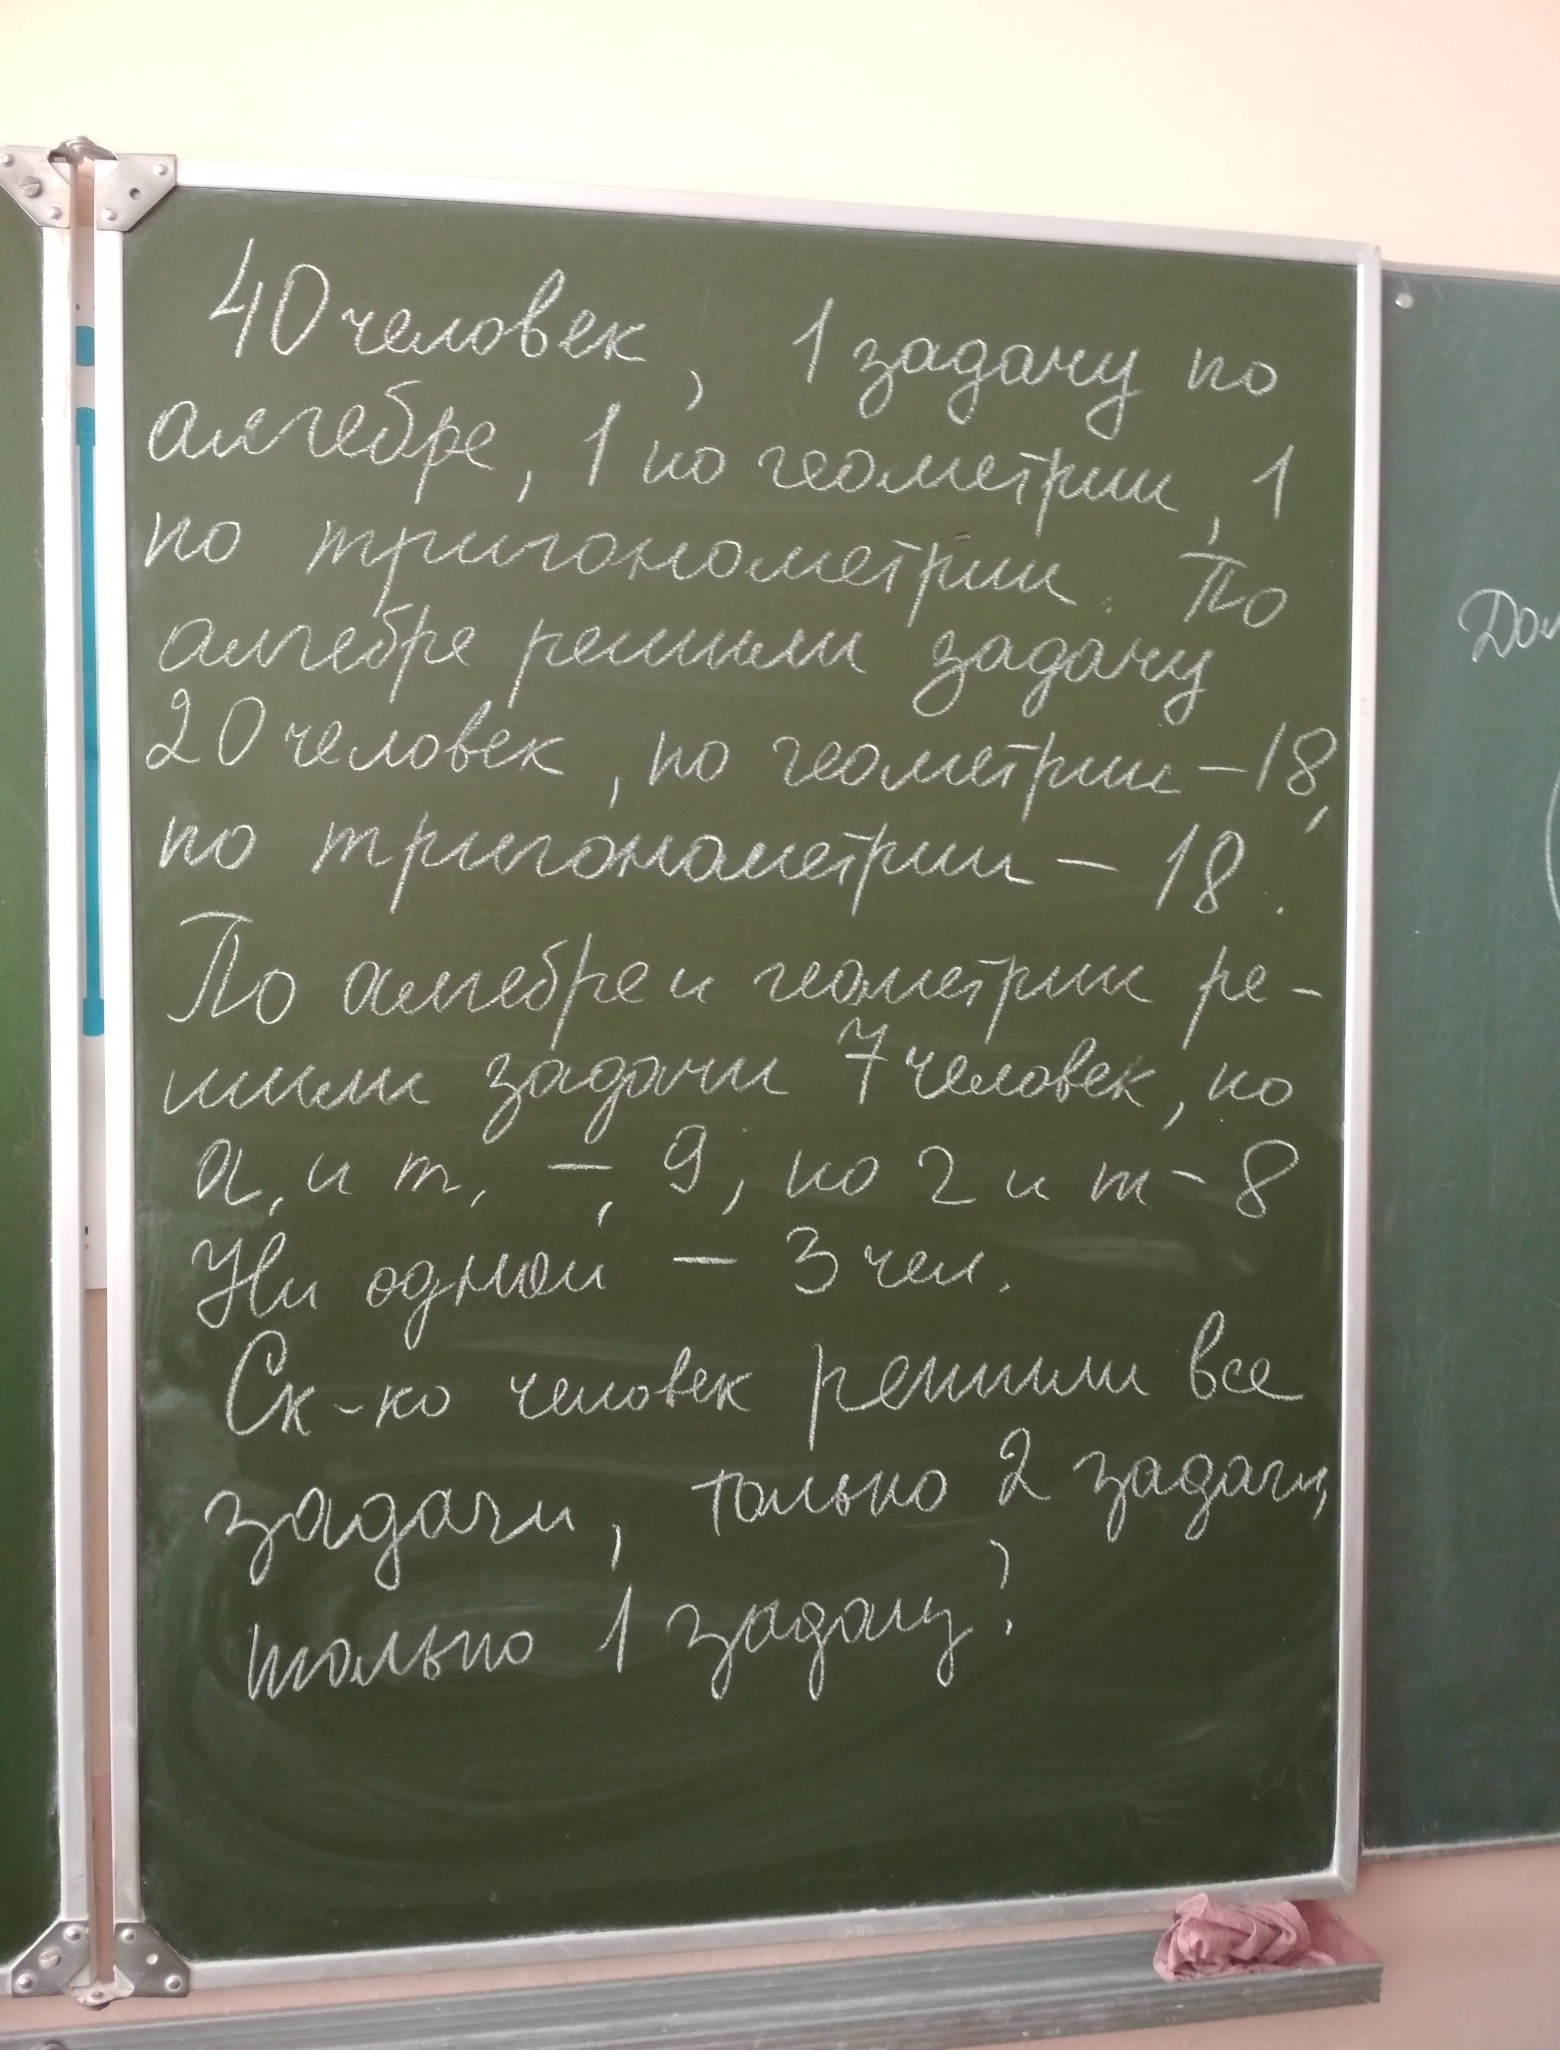 40 человек, 1 задачу по
алгебре, 1 по геометрии, 1
по тригонометрии. По
алгебре решили задачу
20 человек, по геометрии - 18,
по тригонометрии - 18.
По алгебре и геометрии ре-
шили задачи 7 человек, по
а, и т, -, 9, по г и т - 8
Ни одной - 3 чел.
Ск-ко человек решили все
задачи, только 2 задачи,
только 1 задачу?